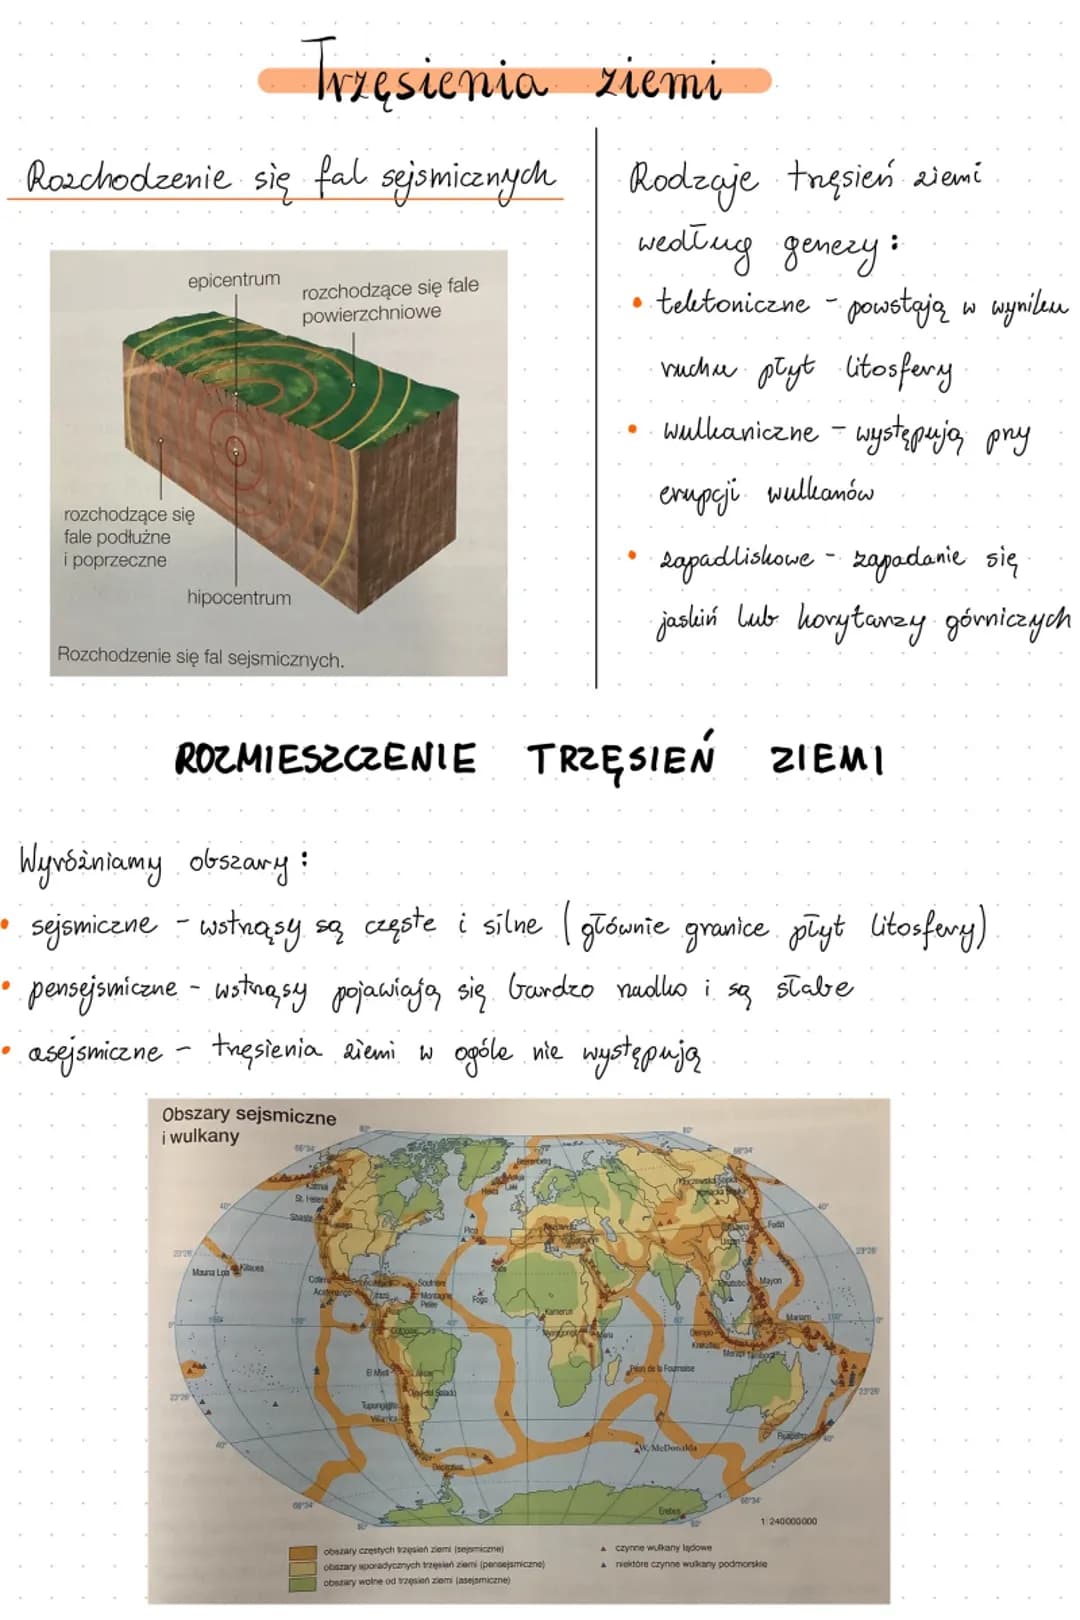 Trzęsienia ziemi
Rozchodzenie się fal sejsmicznych
epicentrum
rozchodzące się fale
powierzchniowe
rozchodzące się
fale podłużne
i poprzeczne
hipocentrum
Rozchodzenie się fal sejsmicznych.
Rodzaje trzęsień ziemi
według genezy:
• tektoniczne - powstają w wyniku
ruchu płyt litosfery
• wulkaniczne - występują przy
erupcji wulkanów
• zapadliskowe - zapadanie się
jaskiń lub korytarzy górniczych
ROZMIESZCZENIE TRZĘSIEŃ ZIEMI
Wyróżniamy obszary:
• sejsmiczne - wstrząsy są częste i silne (głównie granice płyt litosfery)
• pensejsmiczne - wstrząsy pojawiają się bardzo rzadko i są słabe
• asejsmiczne - trzęsienia ziemi w ogóle nie występują
Obszary sejsmiczne
i wulkany
Beerenberg
Katmai
Askja
Hekla
Laki
St. Helens
Shasta
Lassen
Kluczewska Sopka
Pico
Etna
Fudżi
Unzen
Mauna Loa
Kilauea
Colima
Soufrière
Montagne
Pelée
Fogo
Pinatubo
Mayon
Kamerun
Niragongo
Meru
Mariam
Cotopaxi
Dempo
Krakatau
Merapi
Tambora
El Misti
Piton de la Fournaise
Ojos del Salado
Tupungatito
Villarrica
Ruapehu
W. McDonalda
Deception
Erebus
1:240000000
obszary częstych trzęsień ziemi (sejsmiczne)
obszary sporadycznych trzęsień ziemi (pensejsmiczne)
obszary wolne od trzęsień ziemi (asejsmiczne)
czynne wulkany lądowe
niektóre czynne wulkany podmorskie